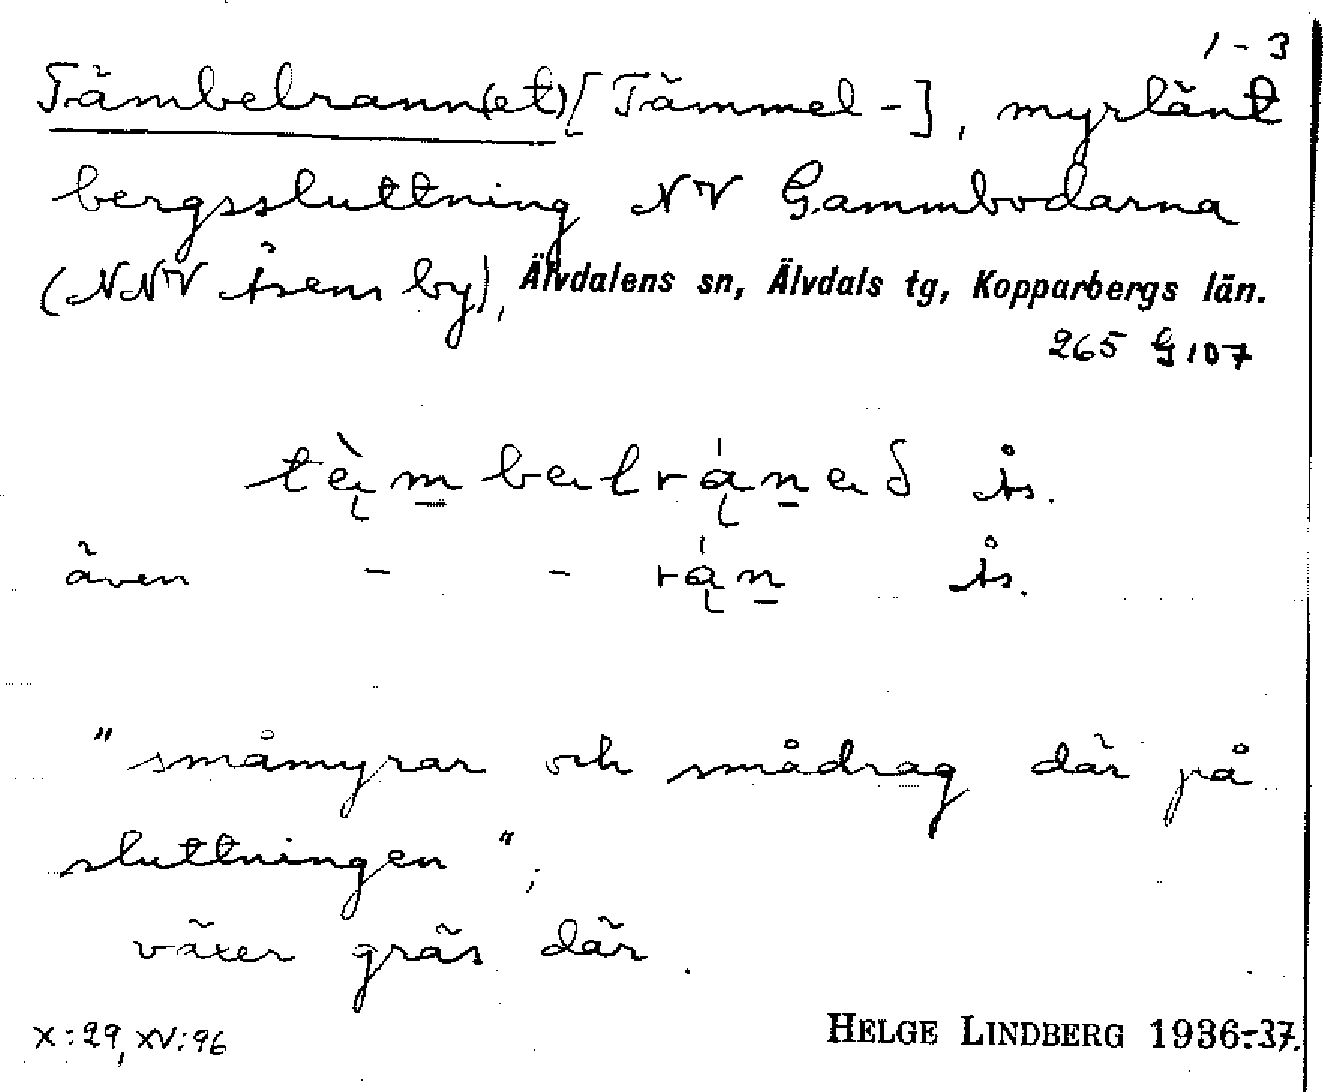 1-3
Tämbelrann(et) [Tämmel-], myrlänt
bergssluttning NV Gammbodarna
(NNV Åsens by), Älvdalens sn, Älvdals tg, Kopparbergs län.
265 G 107
tę̀m̲belrą́n̲eδ Ås.
även - - rą́n̲ Ås.
"småmyrar och smådrag där på
sluttningen";
växer gräs där.
X:29, XV:96
HELGE LINDBERG 1936-37.